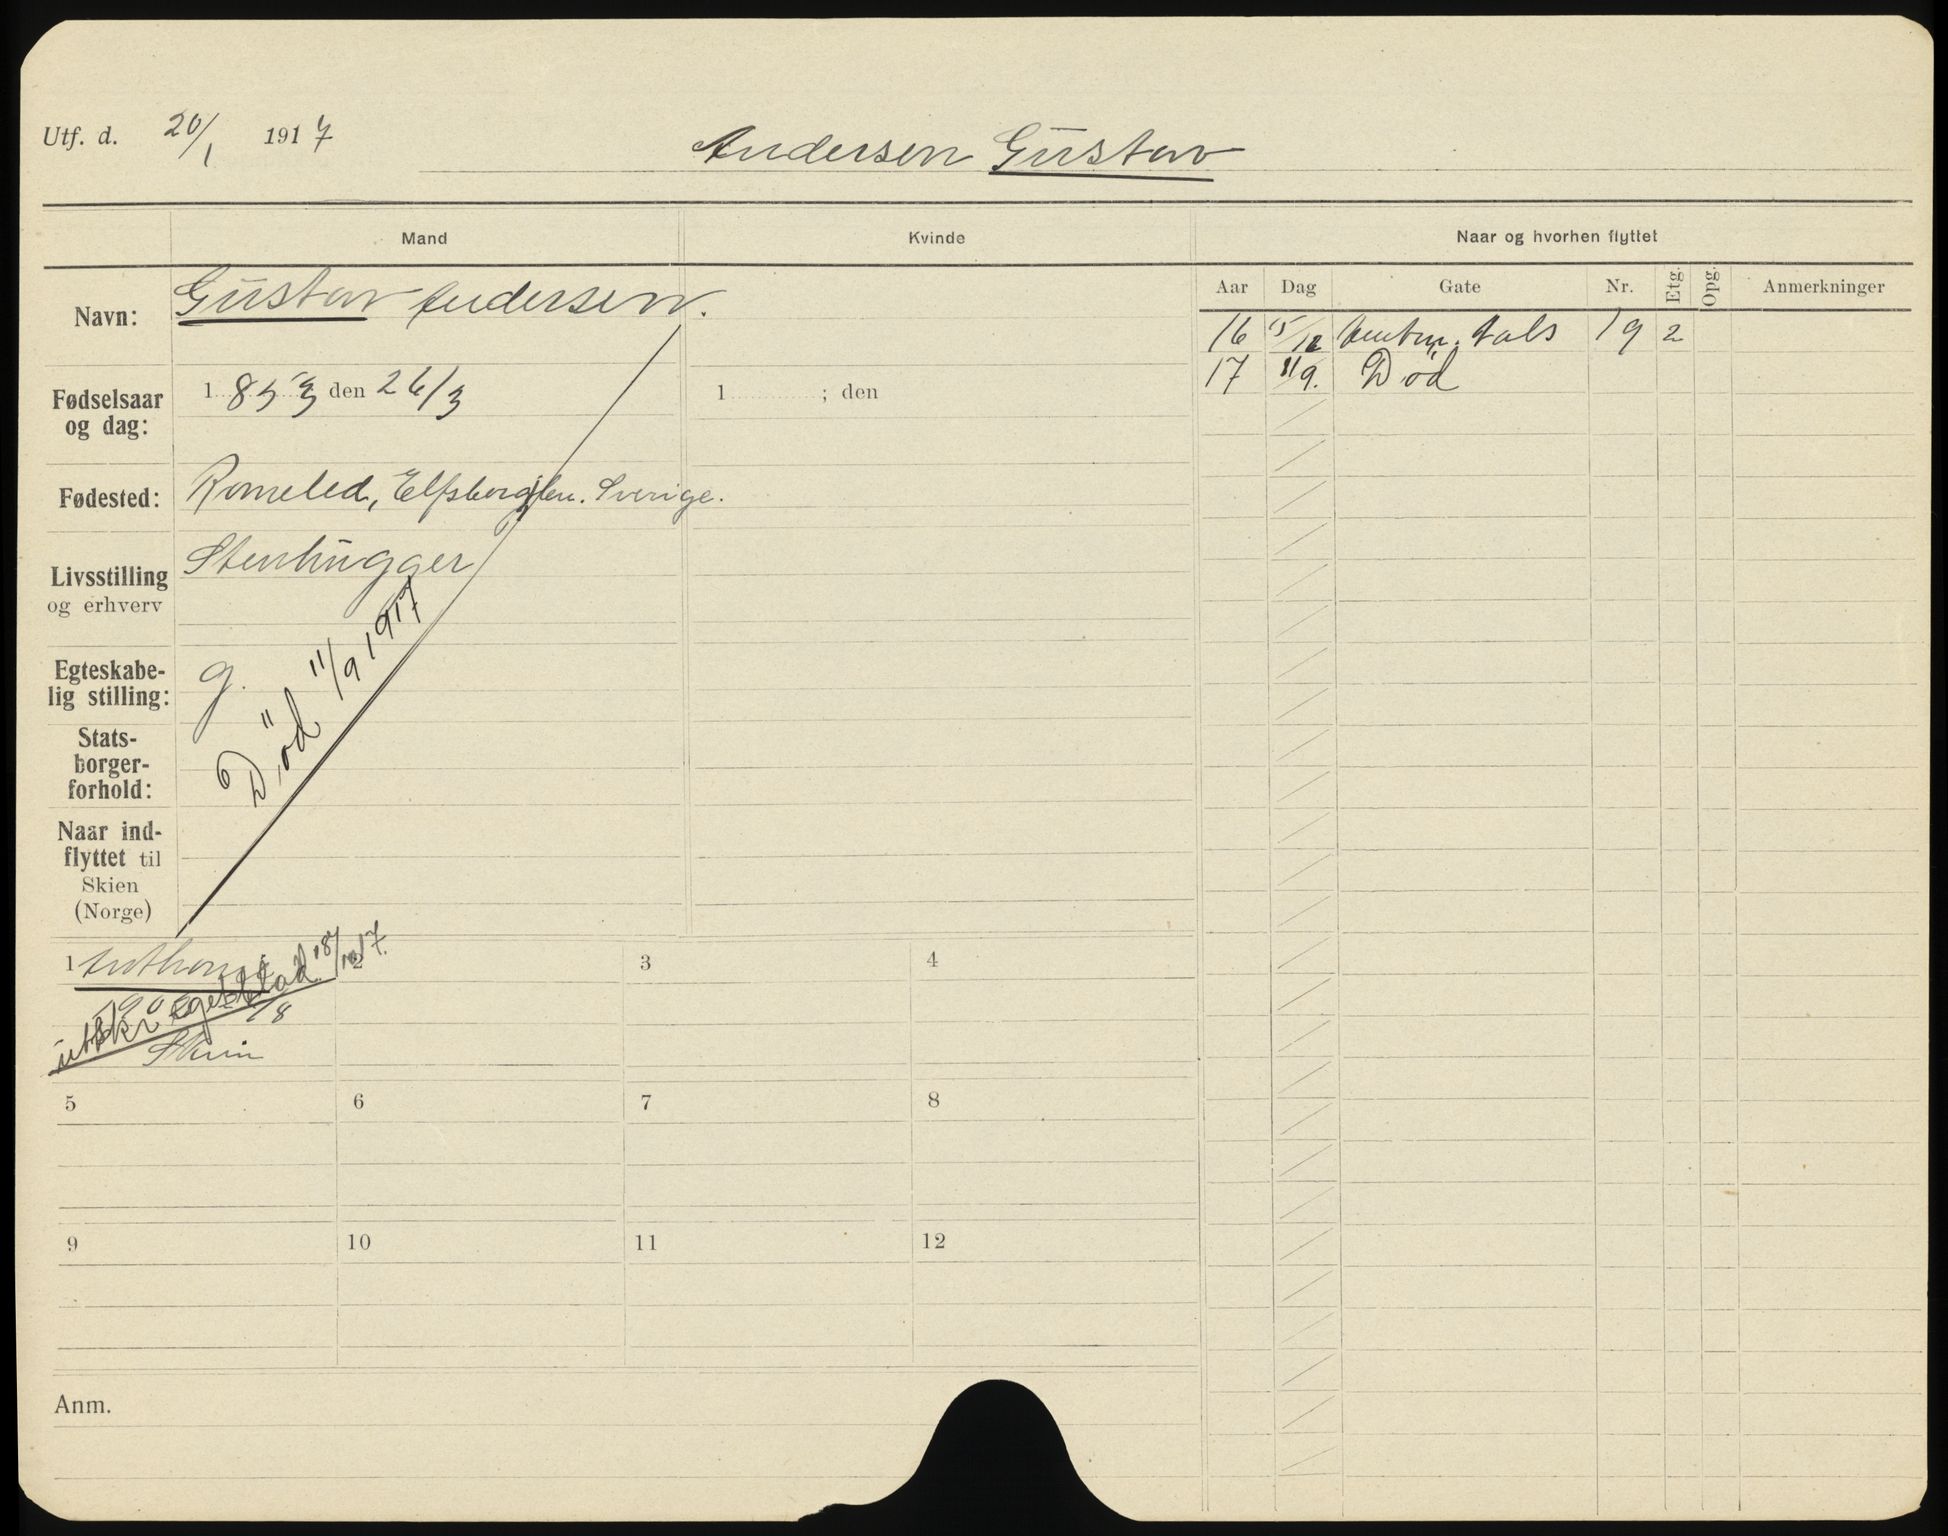 Utf. d. 20/1 1917
Andersen Gustav
Mand
Kvinde
Naar og hvorhen flyttet
Aar Dag Gate Nr. Etg. Opg. Anmerkninger
16 15/12 tals 19 2
17 11/9. Död
Navn: Gustav Andersen.
Fødselsaar
og dag: 1853 den 26/3
1 ; den
Fødested: Romeled, Elfsborglen. Sverige.
Livsstilling
og erhverv
Stenhugger
Egteskabe-
lig stilling: g.
Död 11/9 1917
Stats-
borger-
forhold:
Naar ind-
flyttet til
Skien
(Norge)
1 Anthon
190 7/8
Skien
utskr. Eget blad 18/10 17.
2
3
4
5
6
7
8
9
10
11
12
Anm.